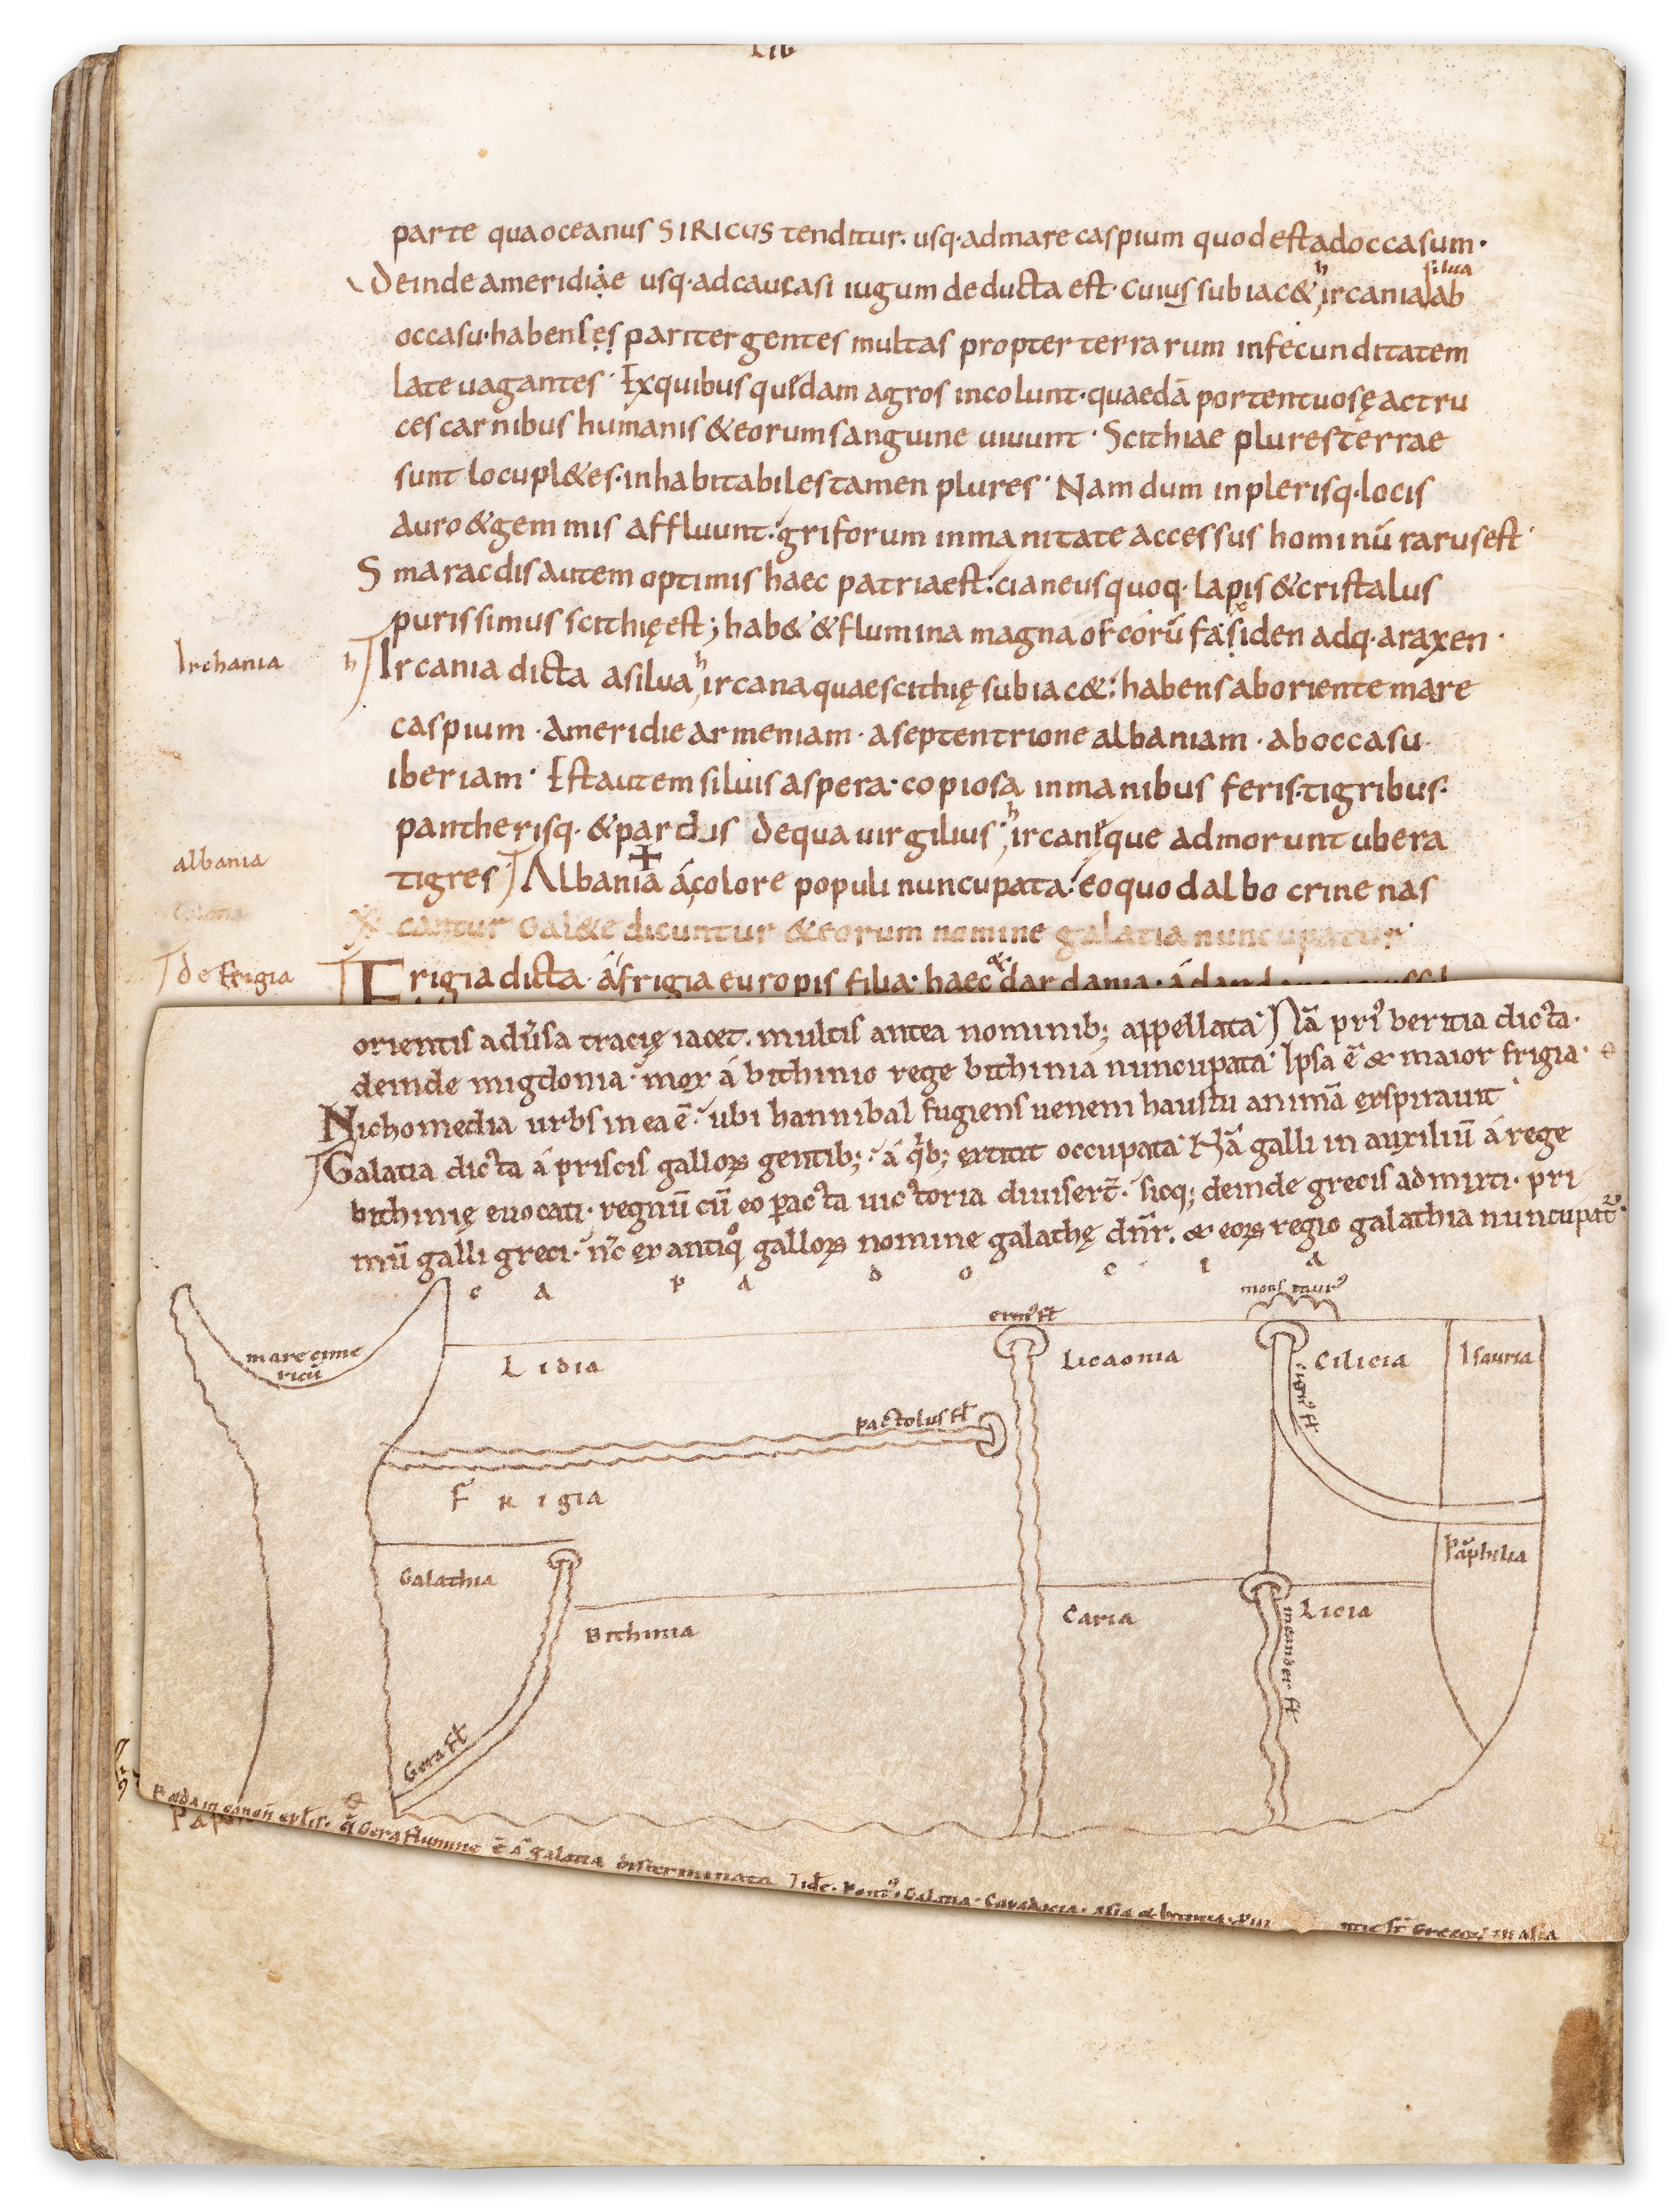 Lib
parte qua oceanus SIRICUS tenditur. usq· ad mare caspium quod est ad occasum·
Deinde ameridiae usq· ad caucasi iugum deducta est· Cuius subiac& hircania silua ab
occasu· habenses pariter gentes multas propter terrarum infecunditatem
late uagantes· Ex quibus quędam agros incolunt· quaedā portentuosę ac tru
ces carnibus humanis & eorum sanguine uiuunt· Scithiae plures terrae
sunt locupl&es· inhabitabiles tamen plures· Nam dum in plerisq· locis
auro & gemmis affluunt· griforum inmanitate accessus hominū rarus est·
Smaracdis autem optimis haec patria est· cianeus quoq· lapis & cristalus
purissimus scithię est; hab& & flumina magna oscorū faxiden adq· araxen·
Irchania
h Ircania dicta a silua hircana quae scithię subiac& habens ab oriente mare
caspium· a meridie armeniam· a septentrione albaniam· ab occasu
iberiam· Est autem siluis aspera· copiosa inmanibus feris· tigribus·
pantherisq· & pardis de qua uirgilius· hircanęque admorunt ubera
albania
tigres Albania á colore populi nuncupata· eo quod albo crine nas
cantur Gal&e dicuntur & eorum nomine galatia nuncupatur
de frigia
Frigia dicta· á frigia europis filia· haec & dardania· á
orientis adu̓sa tracię iacet. multis antea nominib; appellata· Nā pri᾽ beritia dicta·
deinde migdonia· mox á bithinio rege bithinia nuncupata· Ipsa ē & maior frigia·
Nichomedia urbs in ea ē· ubi hannibal fugiens ueneni haustu animā exspirauit·
Galatia dicta á priscis galloꝝ gentib; á qͥb; extitit occupata· Nā galli in auxiliū á rege
bithinię euocati· regnū cū eo pacta uictoria diuisert̄· sicq; deinde grecis admixti· pri
mū galli greci· n̄c ex antiqͦ galloꝝ nomine galathę dn̄r. & eoꝝ regio galathia nuncupat᷑·
C A P A D O C I A
mons taur᾽
erm᾽ fl
mare cime
ricū
Lidia
Licaonia
Cilicia
Isauria
tigr᾽ fl
pactolus fl
Frigia
Galathia
Bithinia
Caria
Licia
Pāphilia
meander fl
Gera fl
Gera flumine ē a galatia disterminata
Galatia· Capadocia· asia &
in asia